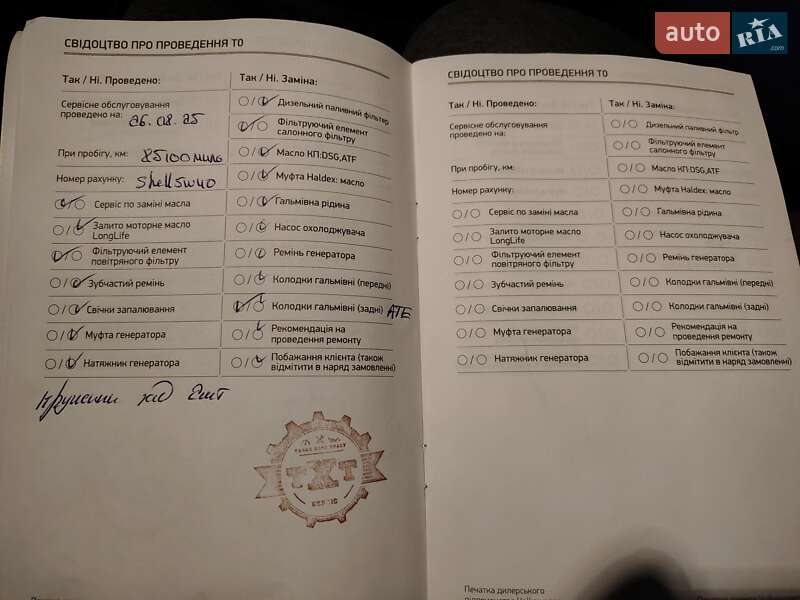 auto RIA .com
СВІДОЦТВО ПРО ПРОВЕДЕННЯ ТО
Так / Ні. Проведено:
Сервісне обслуговування
проведено на: 26.08.25
При пробігу, км: 85100 миль
Номер рахунку: Shell 5W40
Сервіс по заміні масла
Залито моторне масло
LongLife
Фільтруючий елемент
повітряного фільтру
Зубчастий ремінь
Свічки запалювання
Муфта генератора
Натяжник генератора
Так / Ні. Заміна:
Дизельний паливний фільтер
Фільтруючий елемент
салонного фільтру
Масло КП:DSG,ATF
Муфта Haldex: масло
Гальмівна рідина
Насос охолоджувача
Ремінь генератора
Колодки гальмівні (передні)
Колодки гальмівні (задні) ATE
Рекомендація на
проведення ремонту
Побажання клієнта (також
відмітити в наряд замовленні)
ТХТ
СЕРВІС
СВІДОЦТВО ПРО ПРОВЕДЕННЯ ТО
Так / Ні. Проведено:
Сервісне обслуговування
проведено на:
При пробігу, км:
Номер рахунку:
Сервіс по заміні масла
Залито моторне масло
LongLife
Фільтруючий елемент
повітряного фільтру
Зубчастий ремінь
Свічки запалювання
Муфта генератора
Натяжник генератора
Так / Ні. Заміна:
Дизельний паливний фільтр
Фільтруючий елемент
салонного фільтру
Масло КП:DSG,ATF
Муфта Haldex: масло
Гальмівна рідина
Насос охолоджувача
Ремінь генератора
Колодки гальмівні (передні)
Колодки гальмівні (задні)
Рекомендація на
проведення ремонту
Побажання клієнта (також
відмітити в наряд замовленні)
Печатка дилерського